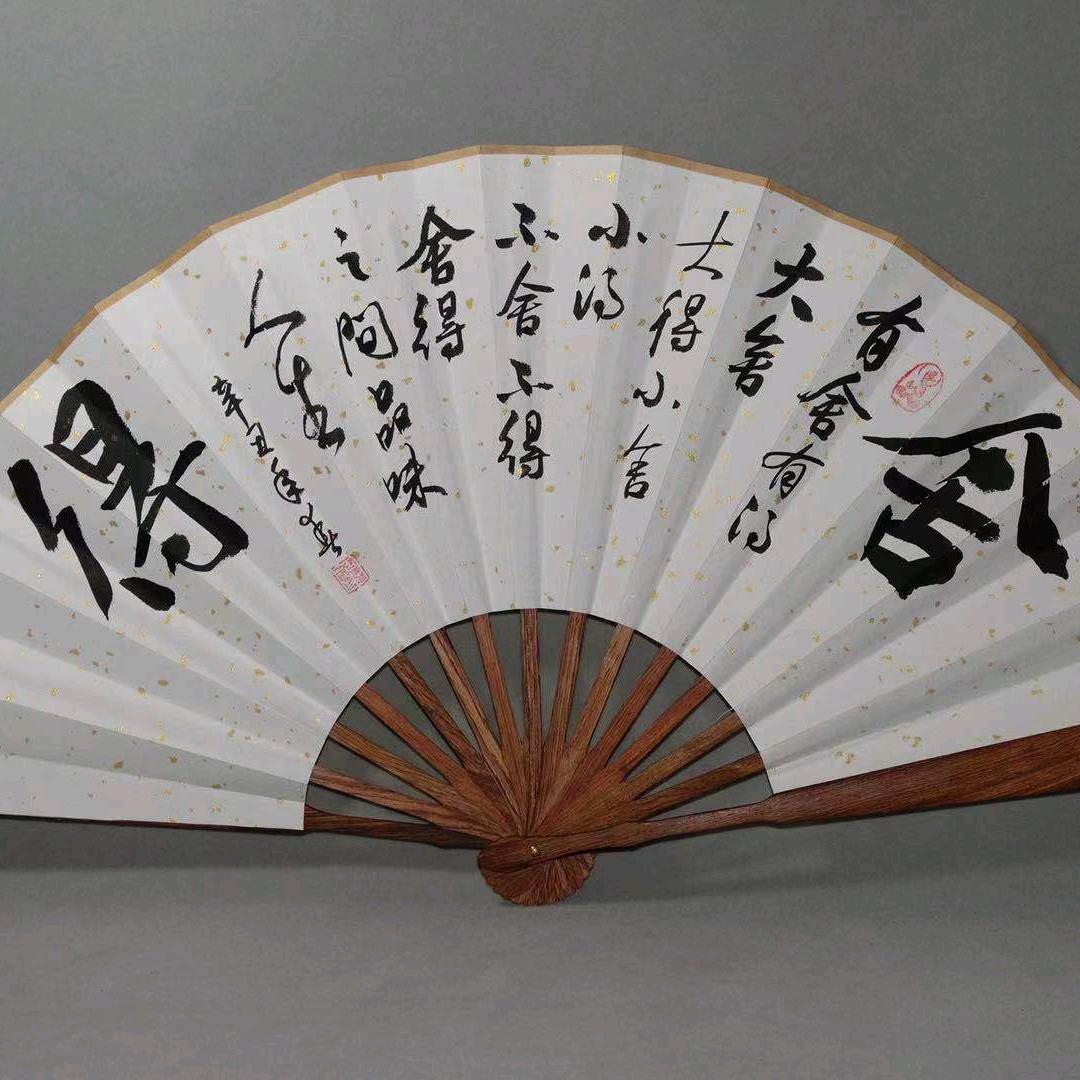 舍
有舍有得
大舍
大得小舍
小得
不舍不得
舍得
之間品味
人生
辛丑年文
得